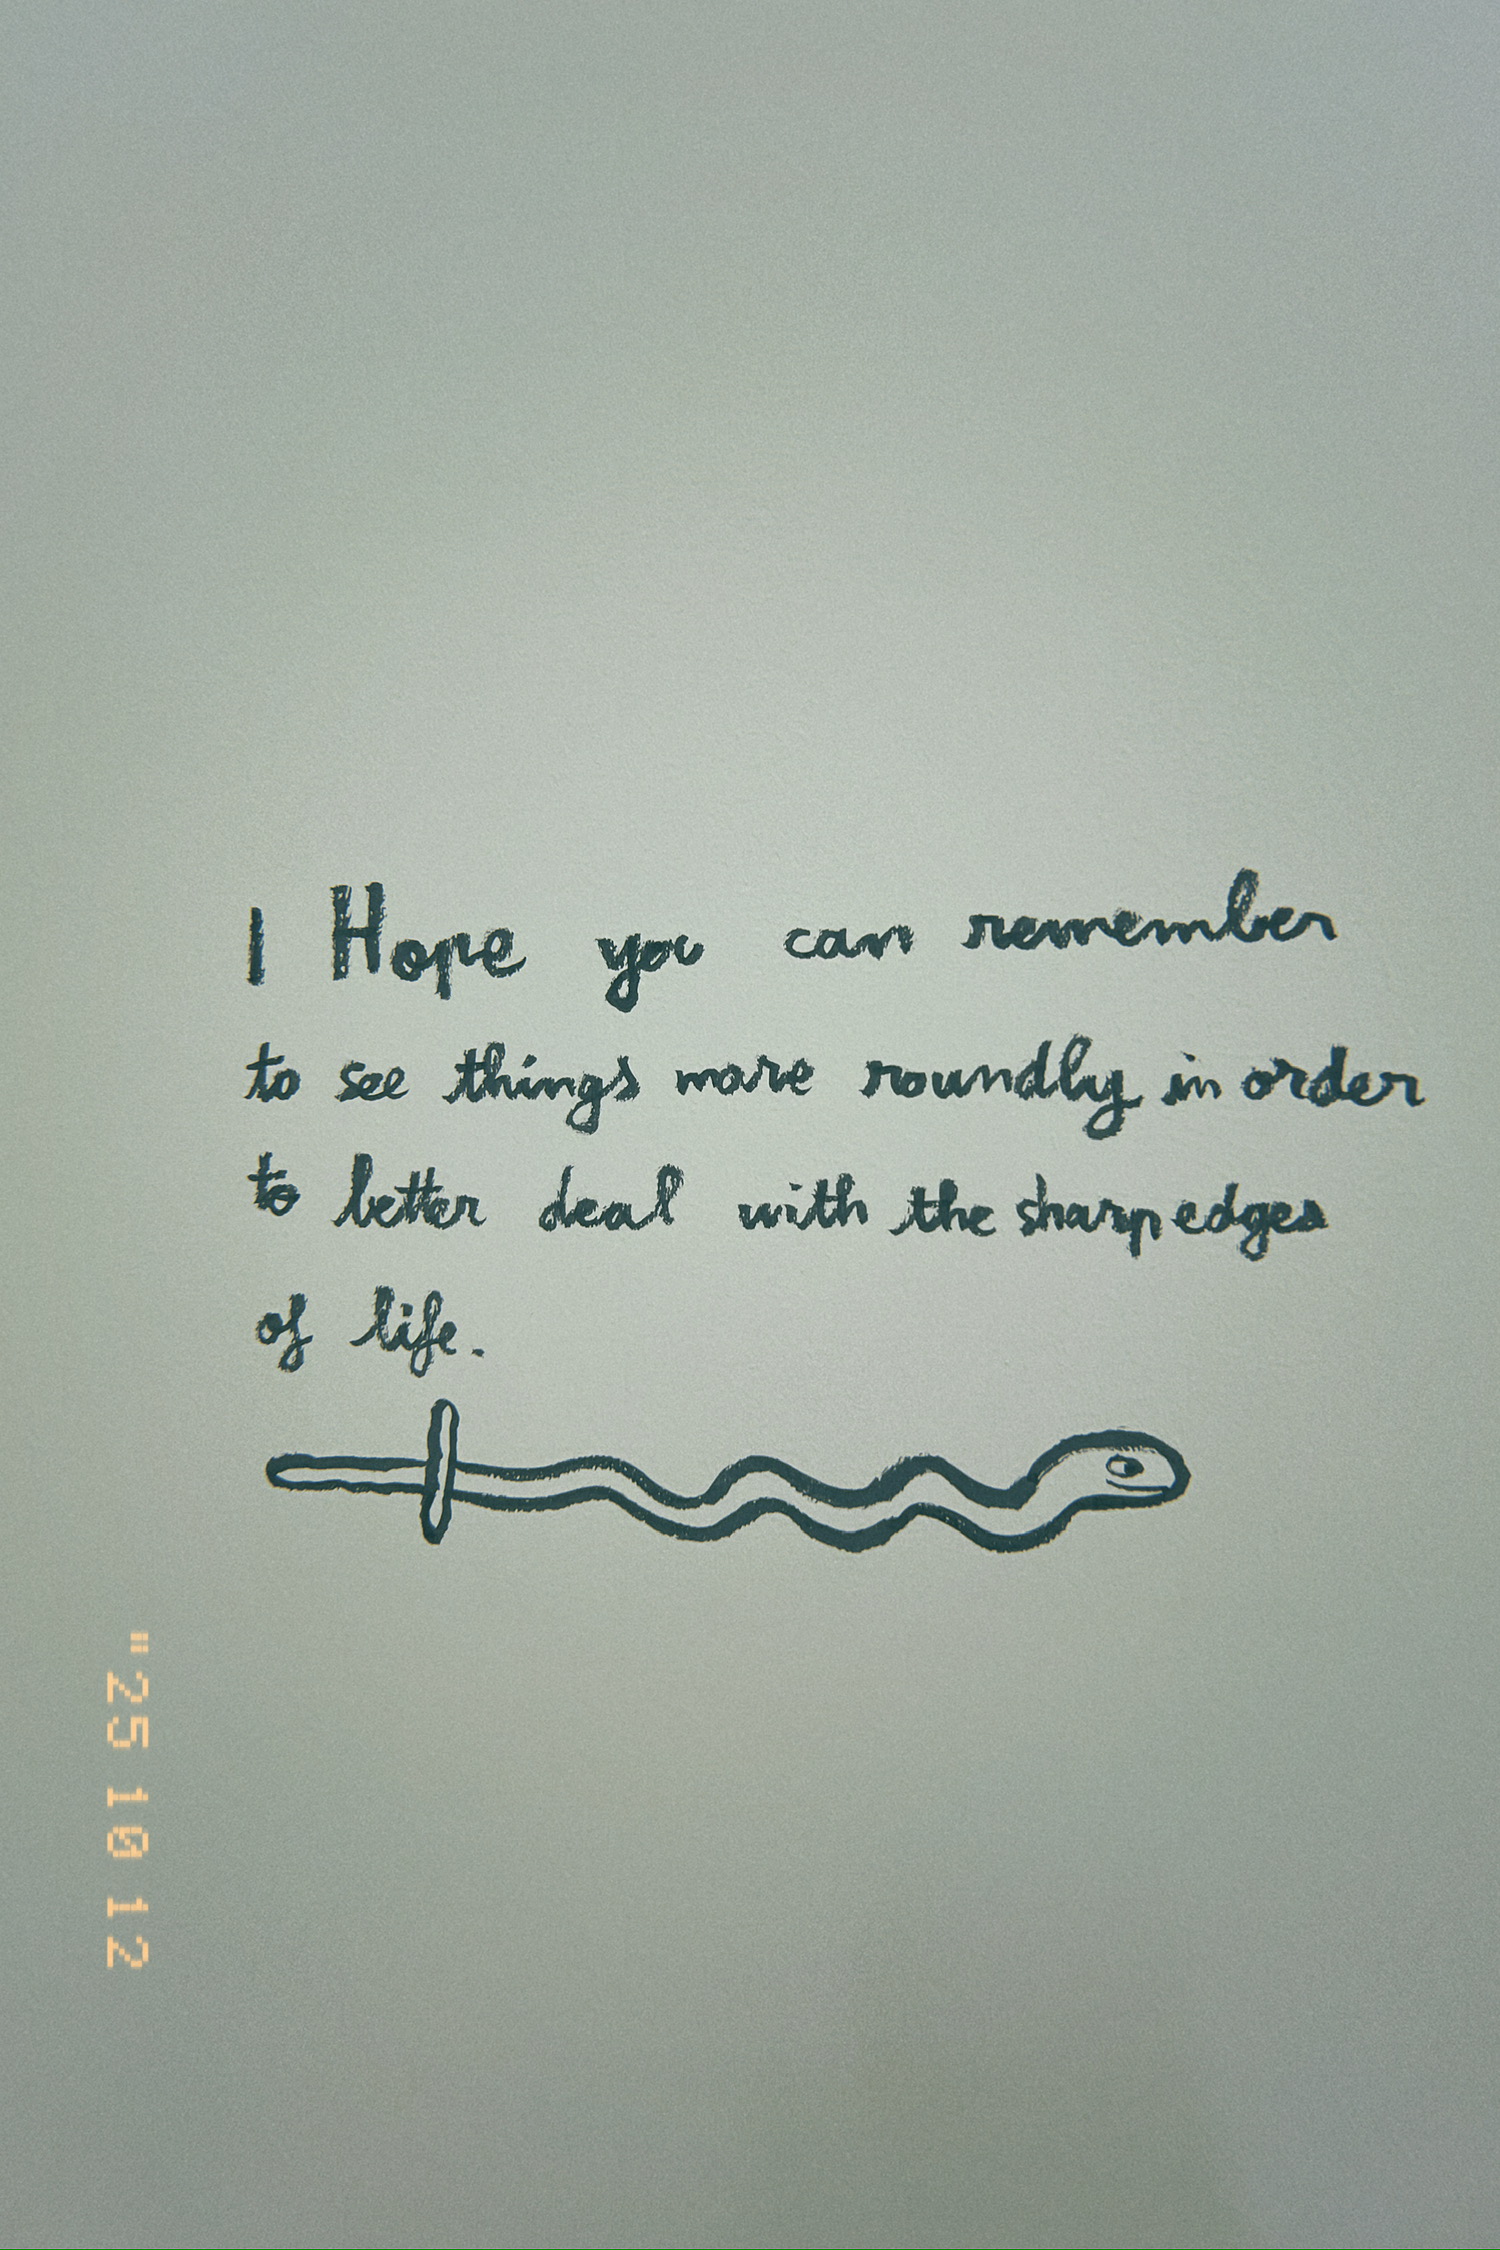 I Hope you can remember
to see things more roundly in order
to better deal with the sharp edges
of life.
"25 10 12